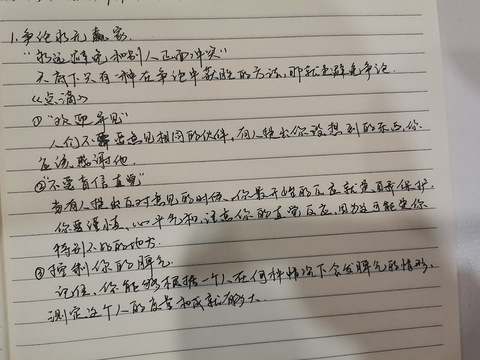 1.争论永无赢家.
“永远避免和别人正面冲突”
天底下只有一种在争论中获胜的方法,那就是避免争论.
《点滴》
①“欢迎异见”
人们不需要意见相同的伙伴,有人提出你没想到的东西,你
应该感谢他.
②“不要盲信直觉”
当有人提出反对意见的时候,你最开始的反应就是自我保护.
你要谨慎,心平气和,注意你的直觉反应,因为这可能是你
特别不好的地方.
③控制你的脾气.
记住,你能够根据一个人在何种情况下会发脾气的情形,
测定这个人的度量和成就有多大.